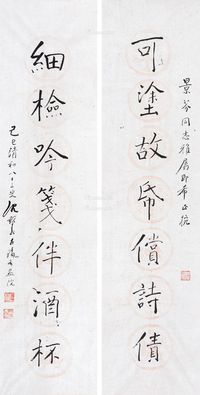 景芬同志雅屬即希正
可塗故帋償詩債
細檢吟箋伴酒杯
己巳清和八十二叟沈